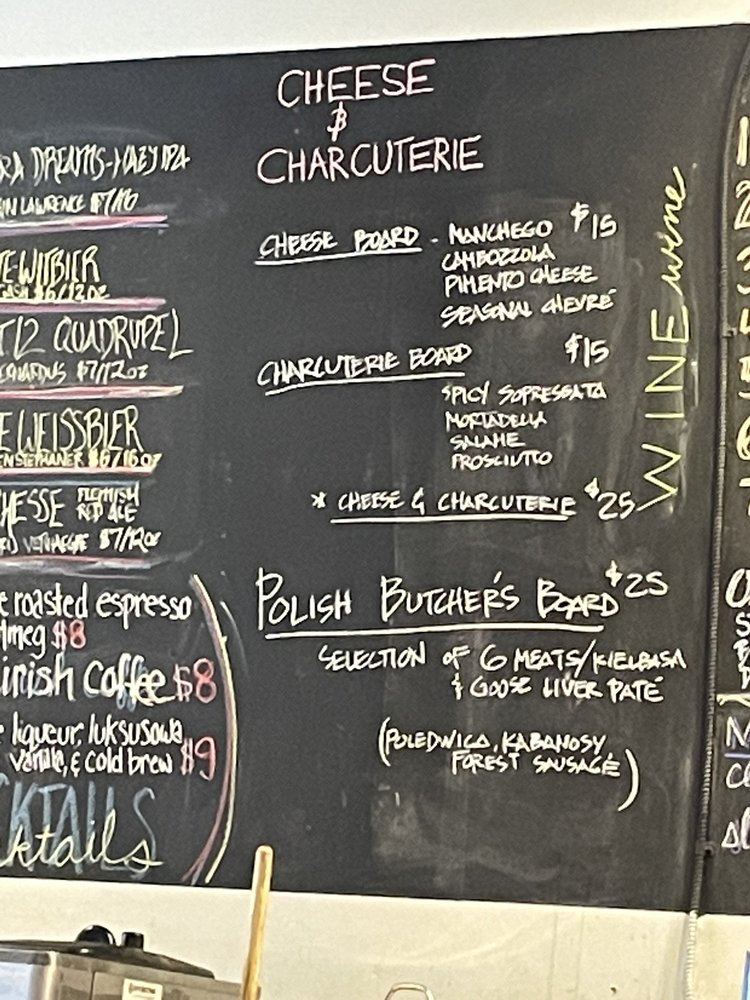 DREAMS-HAZY IPA
LAWRENCE $7/16
WITBIER
$6/12oz
QUADRUPEL
$7/12oz
WEISSBIER
$6/16oz
FLEMISH
RED ALE
$7/12oz
roasted espresso
$8
coffee $8
liqueur, luksusowa
& cold brew $9
CHEESE
&
CHARCUTERIE
CHEESE BOARD - MANCHEGO $15
CAMBOZZOLA
PIMENTO CHEESE
SEASONAL CHEVRÉ
CHARCUTERIE BOARD $15
SPICY SOPRESSATA
MORTADELLA
SALAME
PROSCIUTTO
* CHEESE & CHARCUTERIE $25
POLISH BUTCHER'S BOARD $25
SELECTION OF 6 MEATS/KIELBASA
& GOOSE LIVER PATÉ
(POLEDWICA, KABANOSY,
FOREST SAUSAGE)
WINE wine